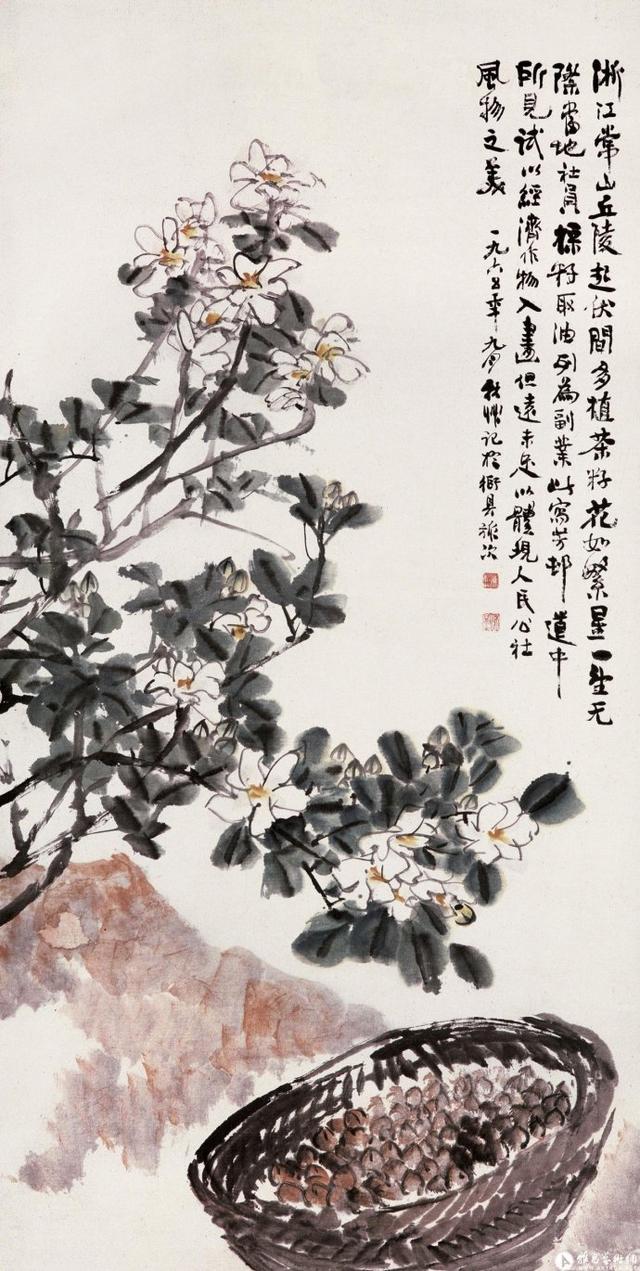 浙江常山丘陵起伏間多植茶籽花如繁星一望无
際當地社員採籽取油列為副業此寫芳邨道中
所見試以經濟作物入畫但遠未足以體現人民公社
風物之美 一九六五年九月 記於衢縣旅次
雅昌艺术网